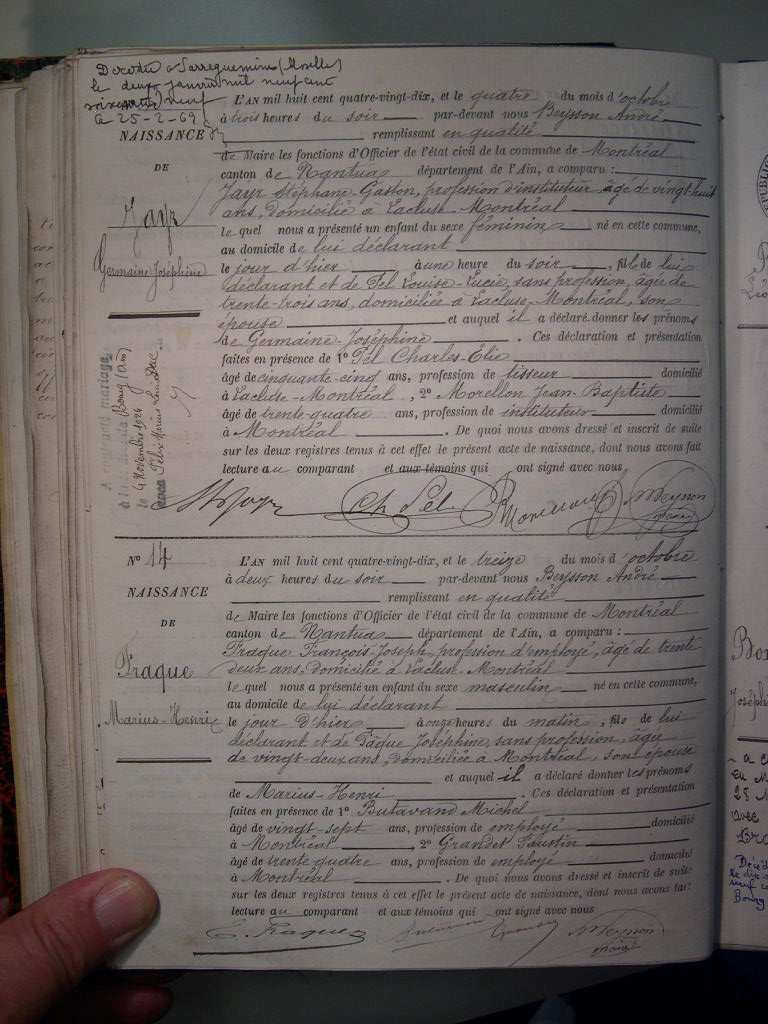 Décédée à Sarreguemines (Moselle)
le deux janvier mil neuf cent
soixante neuf
25-2-69
NAISSANCE
DE
Jayr
Germaine Joséphine
L'AN mil huit cent quatre-vingt-dix, et le quatre du mois d'octobre
à trois heures du soir par-devant nous Beysson André
remplissant en qualité
de Maire les fonctions d'Officier de l'état civil de la commune de Montréal
canton de Nantua département de l'Ain, a comparu :
Jayr Stéphane-Gaston, profession d'instituteur âgé de vingt-huit
ans, domicilié à Lacluse-Montréal
le quel nous a présenté un enfant du sexe féminin né en cette commune,
au domicile de lui déclarant
le jour d'hier à une heure du soir, fille de lui
déclarant et de Pel Louise-Lucie, sans profession, âgée de
trente-trois ans, domiciliée à Lacluse-Montréal, son
épouse et auquel il a déclaré donner les prénoms
de Germaine-Joséphine. Ces déclaration et présentation
faites en présence de 1º Pel Charles-Elie
âgé de cinquante-cinq ans, profession de tisseur domicilié
à Lacluse-Montréal, 2º Morellon Jean-Baptiste
âgé de trente-quatre ans, profession de instituteur domicilié
à Montréal. De quoi nous avons dressé et inscrit de suite
sur les deux registres tenus à cet effet le présent acte de naissance, dont nous avons fait
lecture au comparant et aux témoins qui ont signé avec nous
A contracté mariage
à Bourg (Ain)
le 4 Novembre 1924
avec Félix Marius Louis
St Jayr Ch Pel. Morellon
Nº 14
NAISSANCE
DE
Fraque
Marius-Henri
L'AN mil huit cent quatre-vingt-dix, et le treize du mois d'octobre
à deux heures du soir par-devant nous Beysson André
remplissant en qualité
de Maire les fonctions d'Officier de l'état civil de la commune de Montréal
canton de Nantua département de l'Ain, a comparu :
Fraque François-Joseph, profession d'employé, âgé de trente
deux ans, domicilié à Lacluse-Montréal
le quel nous a présenté un enfant du sexe masculin né en cette commune,
au domicile de lui déclarant
le jour d'hier à onze heures du matin, fils de lui
déclarant et de Pâque Joséphine, sans profession, âgée
de vingt-deux ans, domiciliée à Montréal, son épouse
et auquel il a déclaré donner les prénoms
de Marius-Henri. Ces déclaration et présentation
faites en présence de 1º Butavand Michel
âgé de vingt-sept ans, profession de employé domicilié
à Montréal, 2º Grandet Faustin
âgé de trente quatre ans, profession de employé domicilié
à Montréal. De quoi nous avons dressé et inscrit de suite
sur les deux registres tenus à cet effet le présent acte de naissance, dont nous avons fait
lecture au comparant et aux témoins qui ont signé avec nous
Fraque